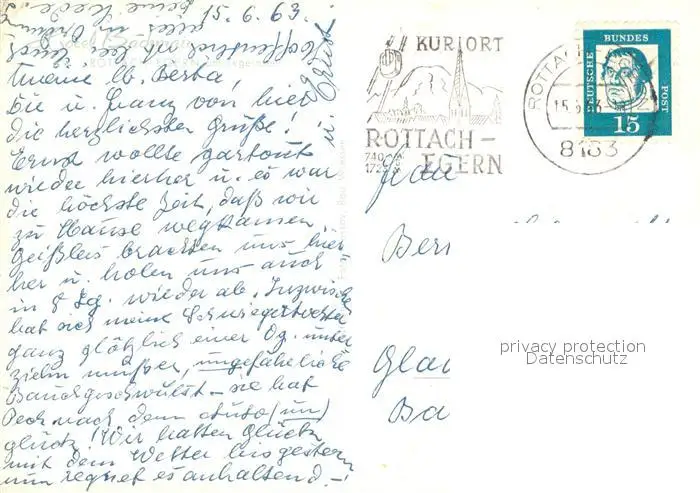 15.6.63.
Meine lb. Berta,
Dir u. Franz von hier
die herzlichsten Grüße!
Ernst wollte partout
wieder hierher u. es war
die höchste Zeit, daß wir
zu Hause wegkamen.
Geißlers brachten uns hier
her u. holen uns auch
in 8 Tg. wieder ab. Inzwischen
hat sich meine Schwiegertochter
ganz plötzlich einer Op. unter
ziehn müssen, ungefährliche
Bauchgeschwulst – sie hat
Pech nach dem Auto(un)
glück! Wir hatten Glück
mit dem Wetter bis gestern
nun regnet es anhaltend. –
u. Ernst
KURORT
ROTTACH-
EGERN
740
ROTTACH
15.6.63
8183
DEUTSCHE BUNDESPOST
15
Frau
Ber
Gla
Ba
privacy protection
Datenschutz